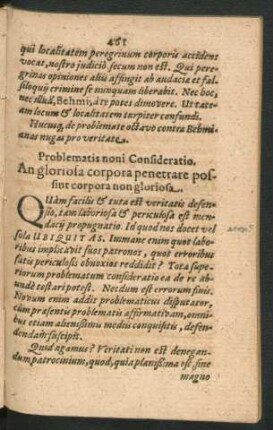 261
qui localitatem peregrinum corporis accidens
vocat, nostro judicio secum non est. Qui pere-
grinas opiniones aliis affingit ab audaciæ et fal-
siloquii crimine se nunquam liberabit. Nec hoc,
nec illud, Behmi, à te potes dimovere. Ut tace-
am locum & localitatem turpiter confundi.
Hucusq, de problemate octavo contra Behmi-
anas nugas pro veritate.
Problematis noni Consideratio.
An gloriosa corpora penetrare pos-
sint corpora non gloriosa.
QUàm facilis & tuta est veritatis defen-
sio, tam laboriosa & periculosa est men-
dacij propugnatio. Id quod nos docet vel
sola UBIQUITAS. Immane enim quot labo-
ribus implicavit suos patronos, quot erroribus
satis periculosis obnoxios reddidit? Tota supe-
riorum problematum consideratio ea de re ab-
undè testari potest. Necdum est errorum finis.
Novum enim addit problematicus disputator,
cùm præsentis problematis affirmativam, omni-
bus etiam alienissimis mediis conquisitis, defen-
dendam suscipit.
Quid agamus? Veritati non est denegan-
dum patrocinium, quod, quia planissima est sine
magno